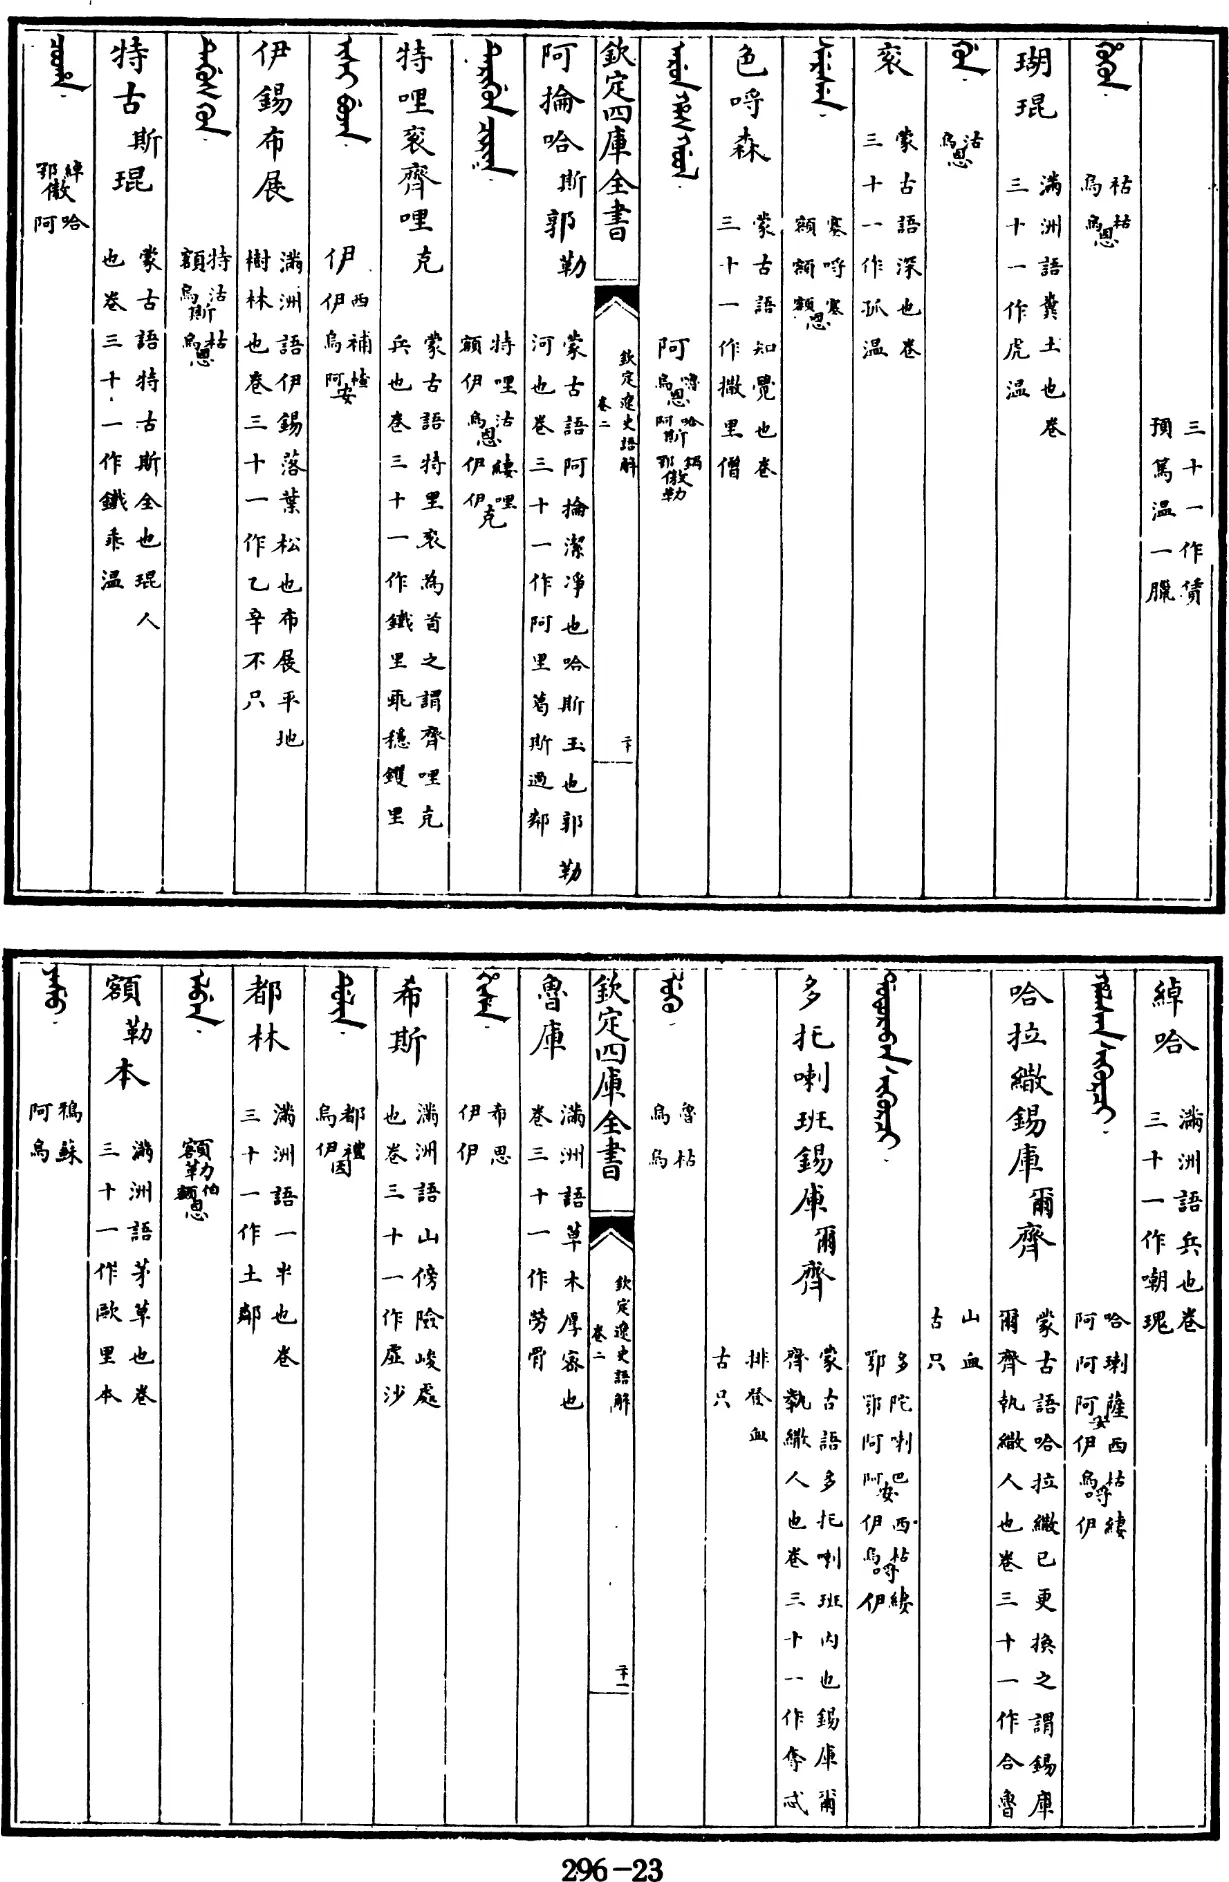 三十一作賃
預篤溫一臘
祜祜
烏烏恩
瑚琨
滿洲語糞土也卷
三十一作虎溫
沽
烏恩
袞
蒙古語深也卷
三十一作孤溫
塞哷塞
額額額恩
色哷森
蒙古語知覺也卷
三十一作撒里僧
嚕哈鍋
阿烏恩阿斯鄂傲勒
欽定四庫全書
欽定遼史語解
卷二
二十
阿掄哈斯郭勒
蒙古語阿掄潔凈也哈斯玉也郭勒
河也卷三十一作阿里葛斯過鄰
特哩沽縷哩
額伊烏恩伊伊克
特哩袞齊哩克
蒙古語特里袞為首之謂齊哩克
兵也卷三十一作鐵里乖穩鑊里
西補
伊伊烏阿安
伊錫布展
滿洲語伊錫落葉松也布展平地
樹林也卷三十一作乙辛不只
特沽祜
額烏斯烏恩
特古斯琨
蒙古語特古斯全也琨人
也卷三十一作鐵乖溫
綽哈
鄂傲阿
綽哈
滿洲語兵也卷
三十一作嘲瑰
哈喇薩西枯縷
阿阿阿安伊烏哷伊
哈拉繖錫庫爾齊
蒙古語哈拉繖已更換之謂錫庫
爾齊執繖人也卷三十一作合魯
山血
古只
多陀喇巴西枯縷
鄂鄂阿阿安伊烏哷伊
多托喇班錫庫爾齊
蒙古語多托喇班內也錫庫爾
齊執繖人也卷三十一作奪忒
排登血
古只
魯枯
烏烏
欽定四庫全書
欽定遼史語解
卷二
二十一
魯庫
滿洲語草木厚密也
卷三十一作勞骨
希思
伊伊
希斯
滿洲語山傍險峻處
也卷三十一作虛沙
都禮
烏伊因
都林
滿洲語一半也卷
三十一作土鄰
額勒伯
額恩
額勒本
滿洲語茅草也卷
三十一作歐里本
鴉蘇
阿烏
296-23